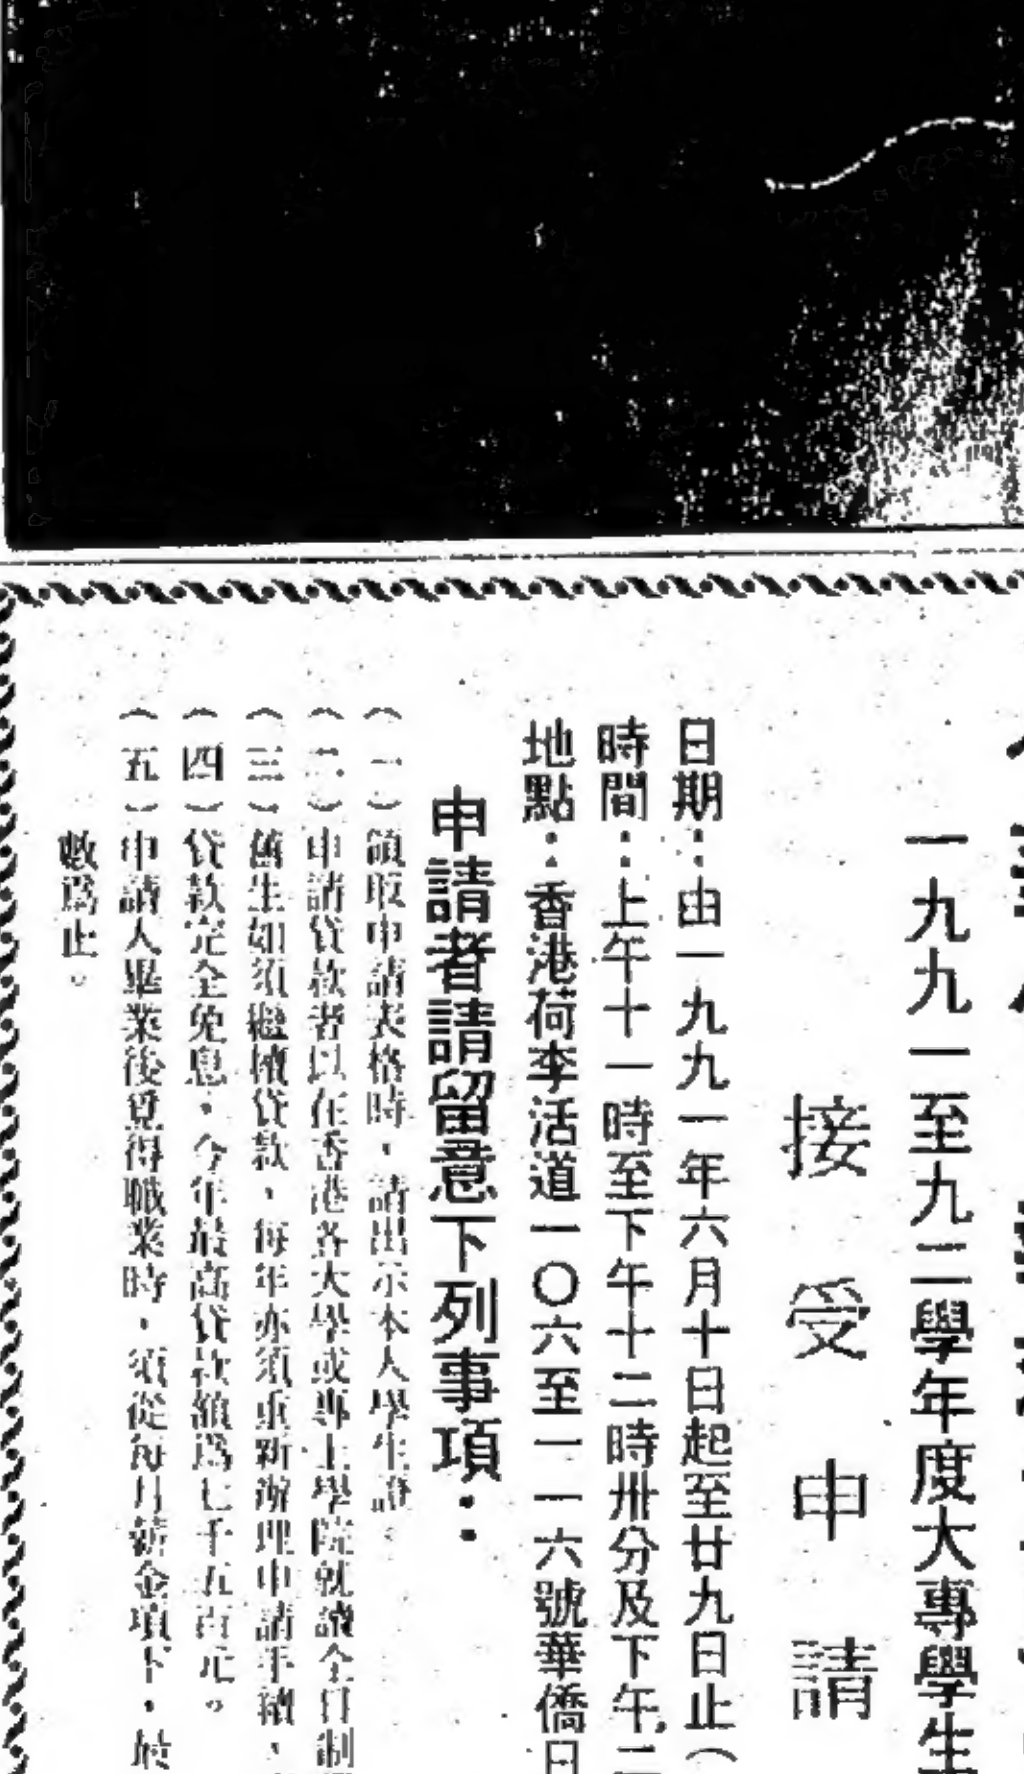 一九九一至九二學年度大專學生
接受申請
日期：由一九九一年六月十日起至廿九日止（
時間：上午十一時至下午十二時卅分及下午二
地點：香港荷李活道一〇六至一一六號華僑日
申請者請留意下列事項：
（一）領取申請表格時，請出示本人學生證。
（二）申請貸款者以在香港各大學或專上學院就讀全日制
（三）舊生如須繼續貸款，每年亦須重新辦理申請手續，
（四）貸款完全免息，今年最高貸款額為七千五百元。
（五）申請人畢業後覓得職業時，須從每月薪金項下，於
數為止。